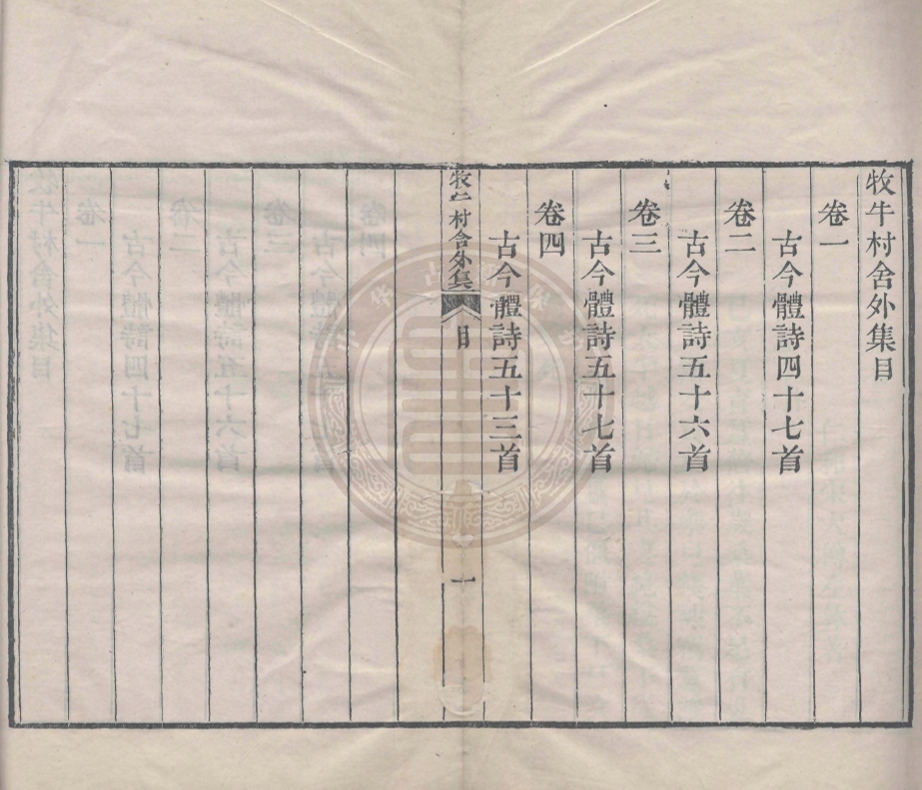 牧牛村舍外集目
卷一
古今體詩四十七首
卷二
古今體詩五十六首
卷三
古今體詩五十七首
卷四
古今體詩五十三首
牧牛村舍外集
目
一